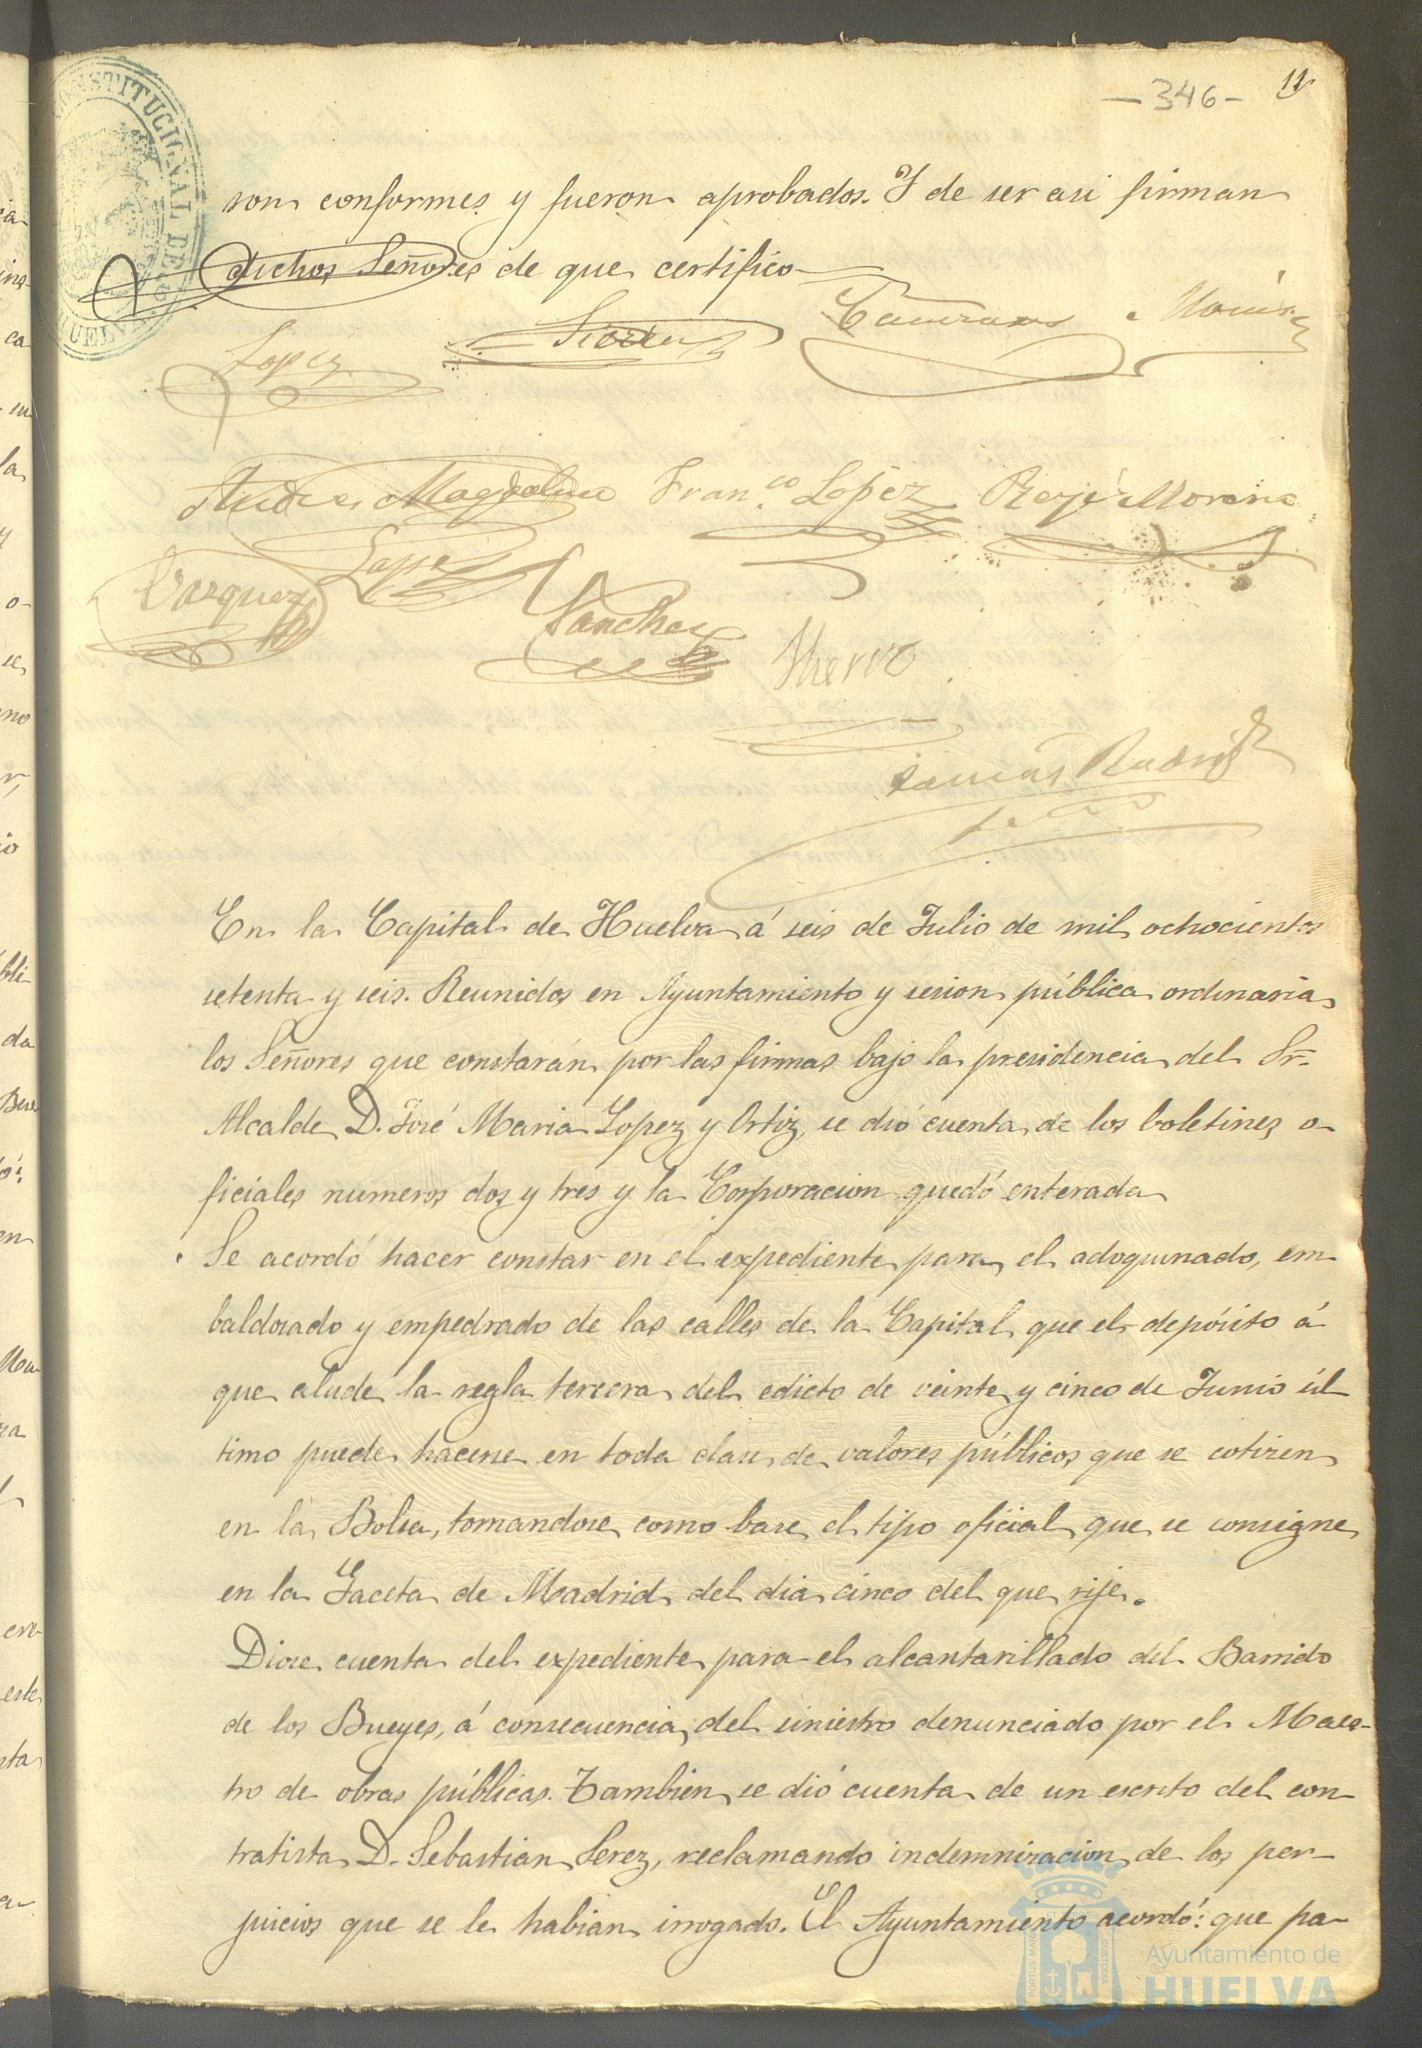 11
-346-
son conformes y fueron aprobados. Y de ser asi firman
dichos Señores de que certifico
Lopez
Francº Lopez
Rojé Moreno
Vazquez
Lopez
Sanchez
En la Capital de Huelva á seis de Julio de mil ochocientos
setenta y seis. Reunidos en Ayuntamiento y sesion pública ordinaria
los Señores que constarán por las firmas bajo la presidencia del Sr.
Alcalde D. José Maria Lopez y Ortiz, se dió cuenta de los boletines o-
ficiales numeros dos y tres y la Corporacion quedó enterada
Se acordó hacer constar en el expediente para el adoquinado, em-
baldosado y empedrado de las calles de la Capital que el depósito á
que alude la regla tercera del edicto de veinte y cinco de Junio úl
timo puede hacerse en toda clase de valores públicos que se cotizen
en la Bolsa, tomandose como base el tipo oficial que se consigne
en la Gaceta de Madrid del dia cinco del que rije.
Diose cuenta del expediente para el alcantarillado del Barrido
de los Bueyes, á consecuencia del siniestro denunciado por el Maes-
tro de obras públicas. Tambien se dió cuenta de un escrito del con-
tratista D. Sebastian Serez, reclamando indemnizacion de los per-
juicios que se le habian irrogado. El Ayuntamiento acordó: que pa-
Ayuntamiento de
HUELVA